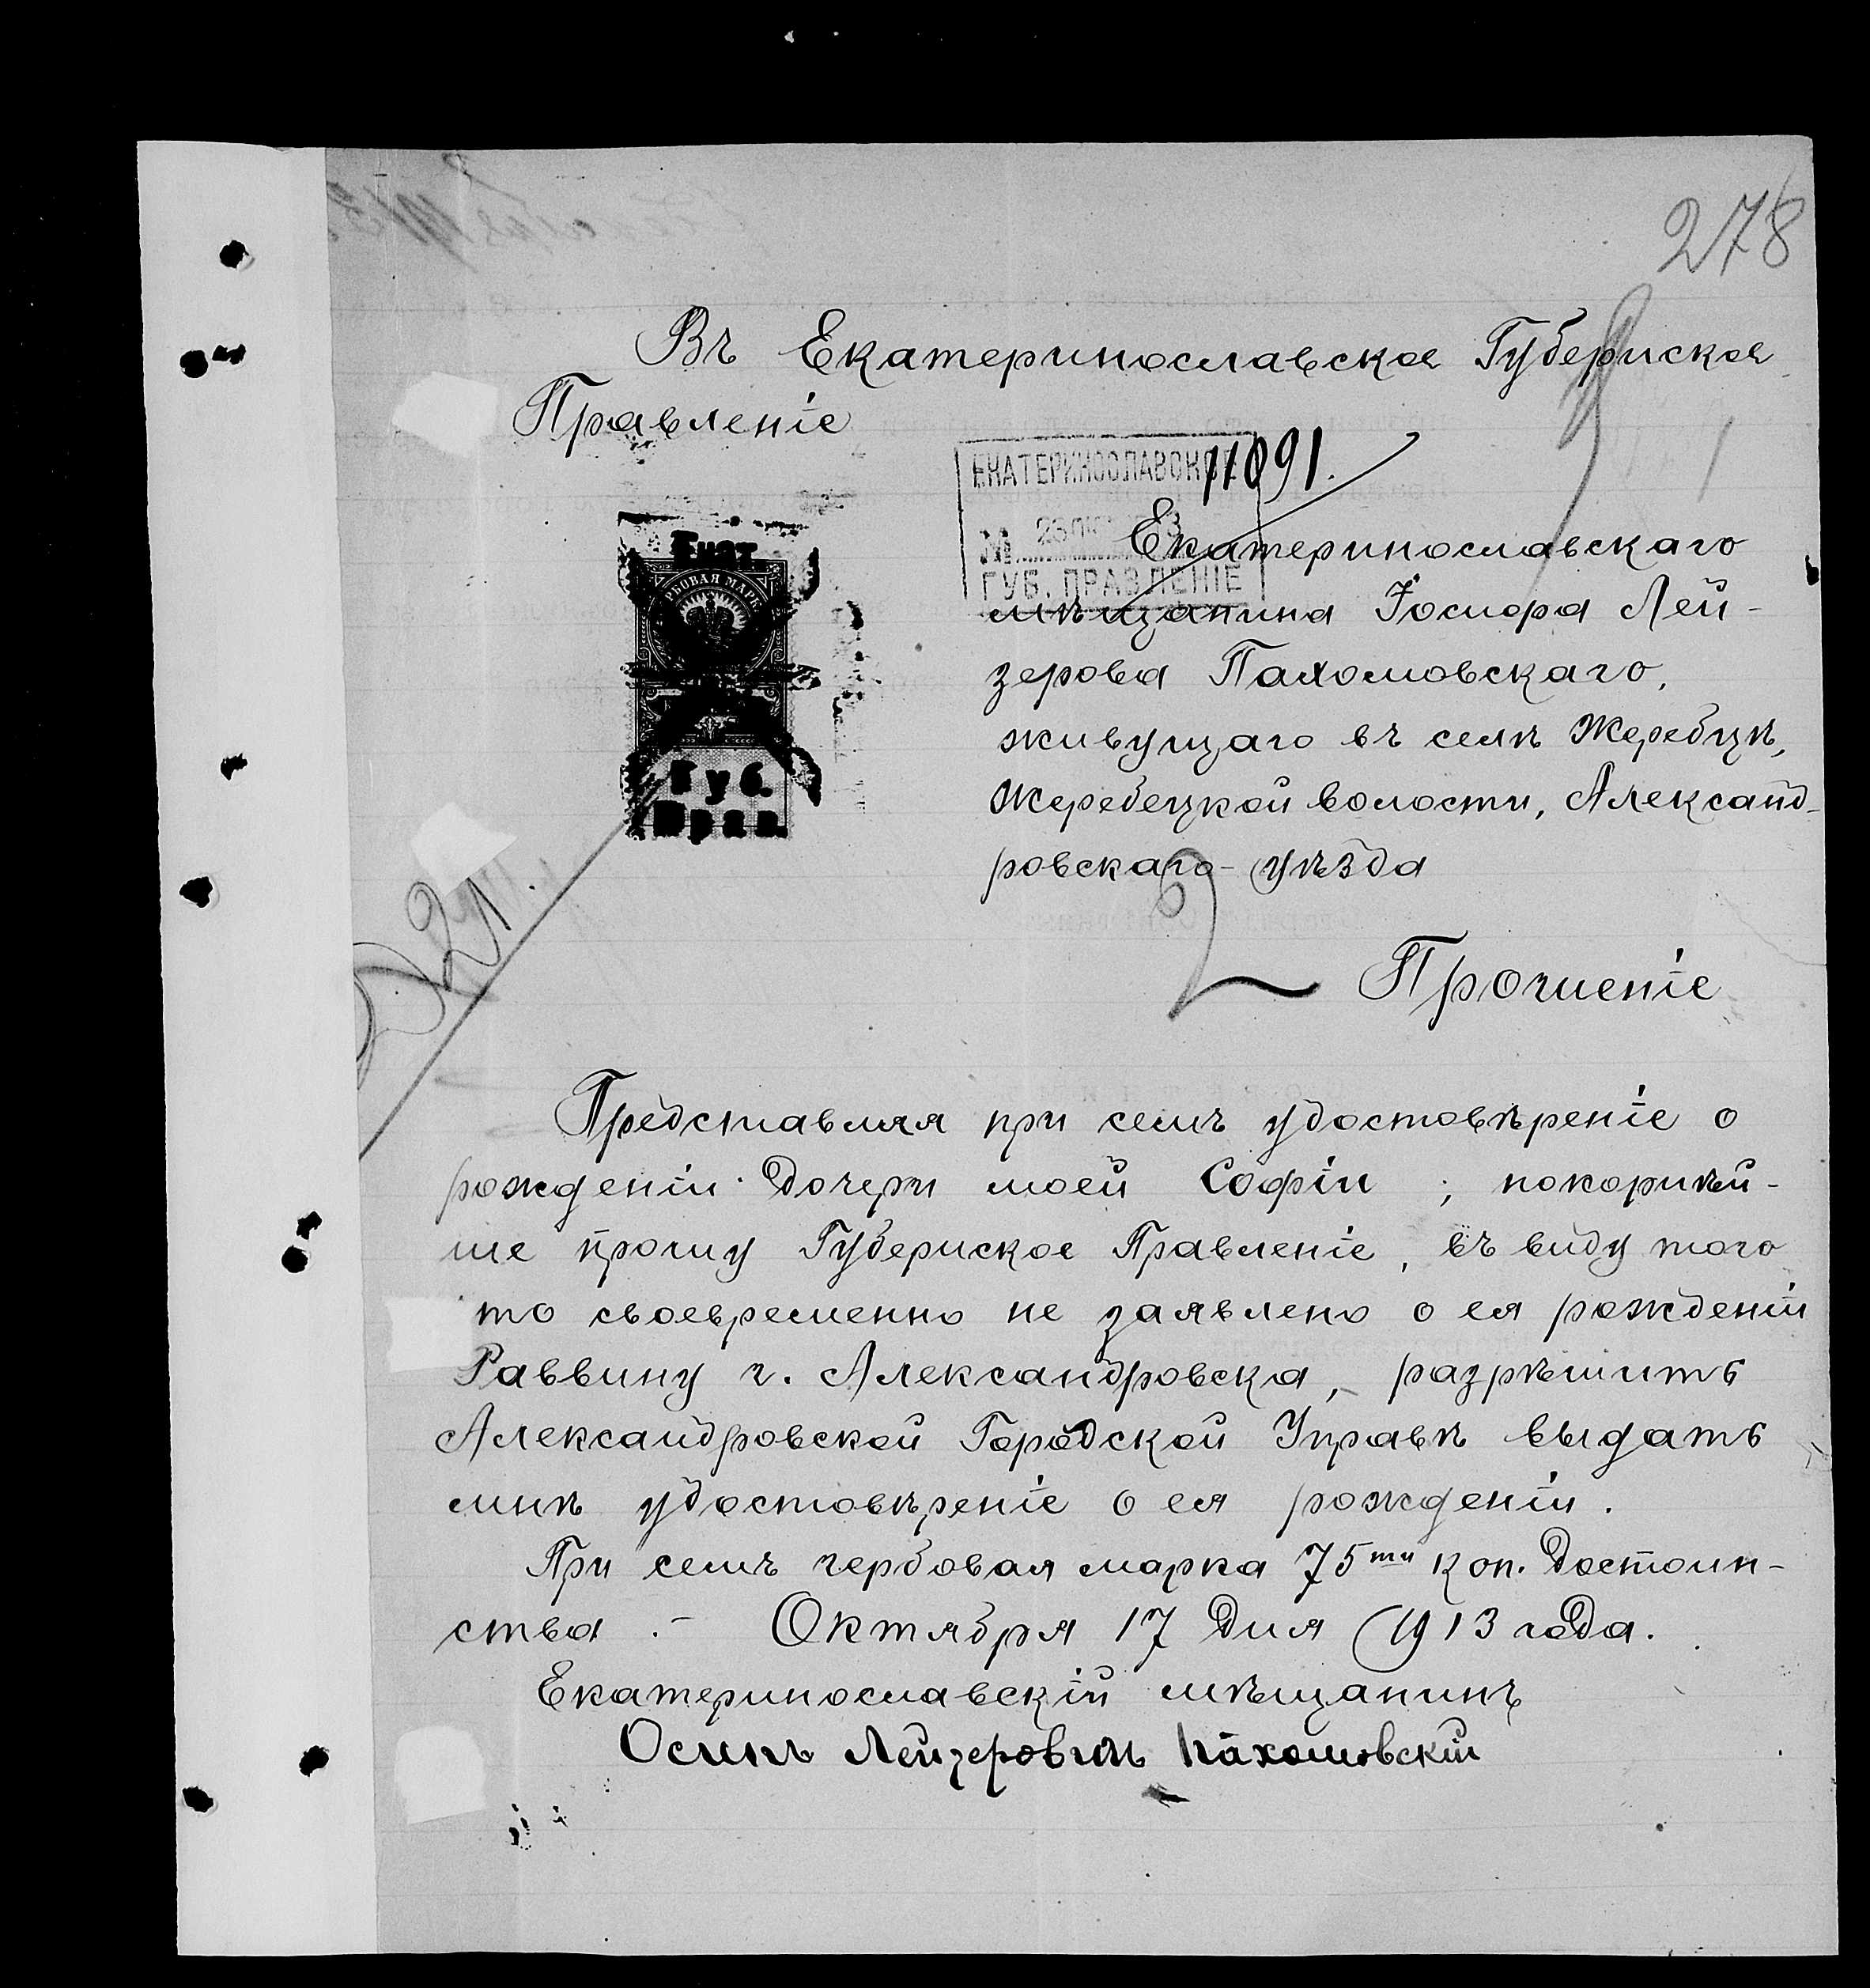 278
Въ Екатеринославское Губернское
Правленіе
ЕКАТЕРИНОСЛАВСКОЕ
11091.
№
ГУБ. ПРАВЛЕНІЕ
Екатеринославскаго
мѣщанина Іосифа Лей-
зерова Пахомовскаго,
живущаго въ селѣ Жеребцѣ,
Жеребецкой волости, Александ-
ровскаго уѣзда
Губ.
Прав.
221.
Прошеніе
Представляя при семъ удостовѣреніе о
рожденіи дочери моей Софіи ; покорнѣй-
ше прошу Губернское Правленіе, въ виду того
то своевременно не заявлено о ея рожденіи
Раввину г. Александровска, разрѣшить
Александровской Городской Управѣ выдать
мнѣ удостовѣреніе о ея рожденіи.
При семъ гербовая марка 75ти коп. достоин-
ства .- Октября 17 дня 1913 года.
Екатеринославскій мѣщанинъ
Осипъ Лейзеровичъ Пахомовскій